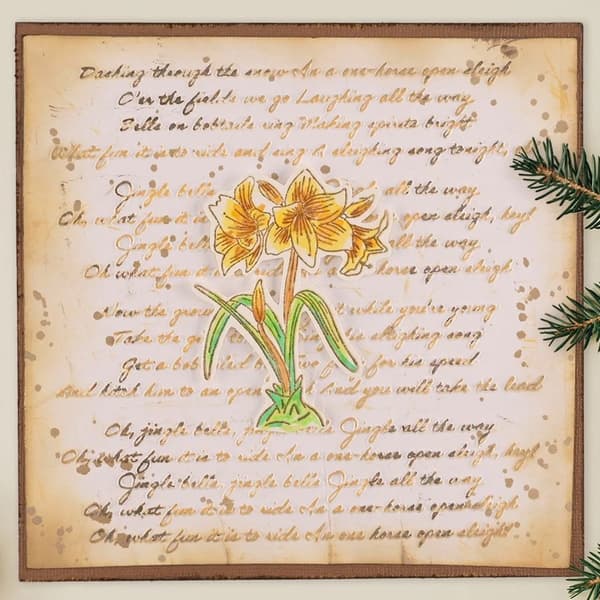 Dashing through the snow In a one-horse open sleigh
O'er the fields we go Laughing all the way
Bells on bobtails ring Making spirits bright
What fun it is to ride and sing A sleighing song tonight,
Jingle bells all the way
Oh, what fun it is open sleigh, hey!
Jingle bells all the way
Oh what fun it is to ride In a horse open sleigh
Now the ground it while you're young
Take the girls to sleighing song
Get a bobtailed two for his speed
And hitch him to an open And you will take the lead
Oh, jingle bells, jingle bells Jingle all the way
Oh, what fun it is to ride In a one-horse open sleigh, hey!
Jingle bells, jingle bells Jingle all the way
Oh, what fun it is to ride In a one-horse open sleigh
Oh, what fun it is to ride In one horse open sleigh